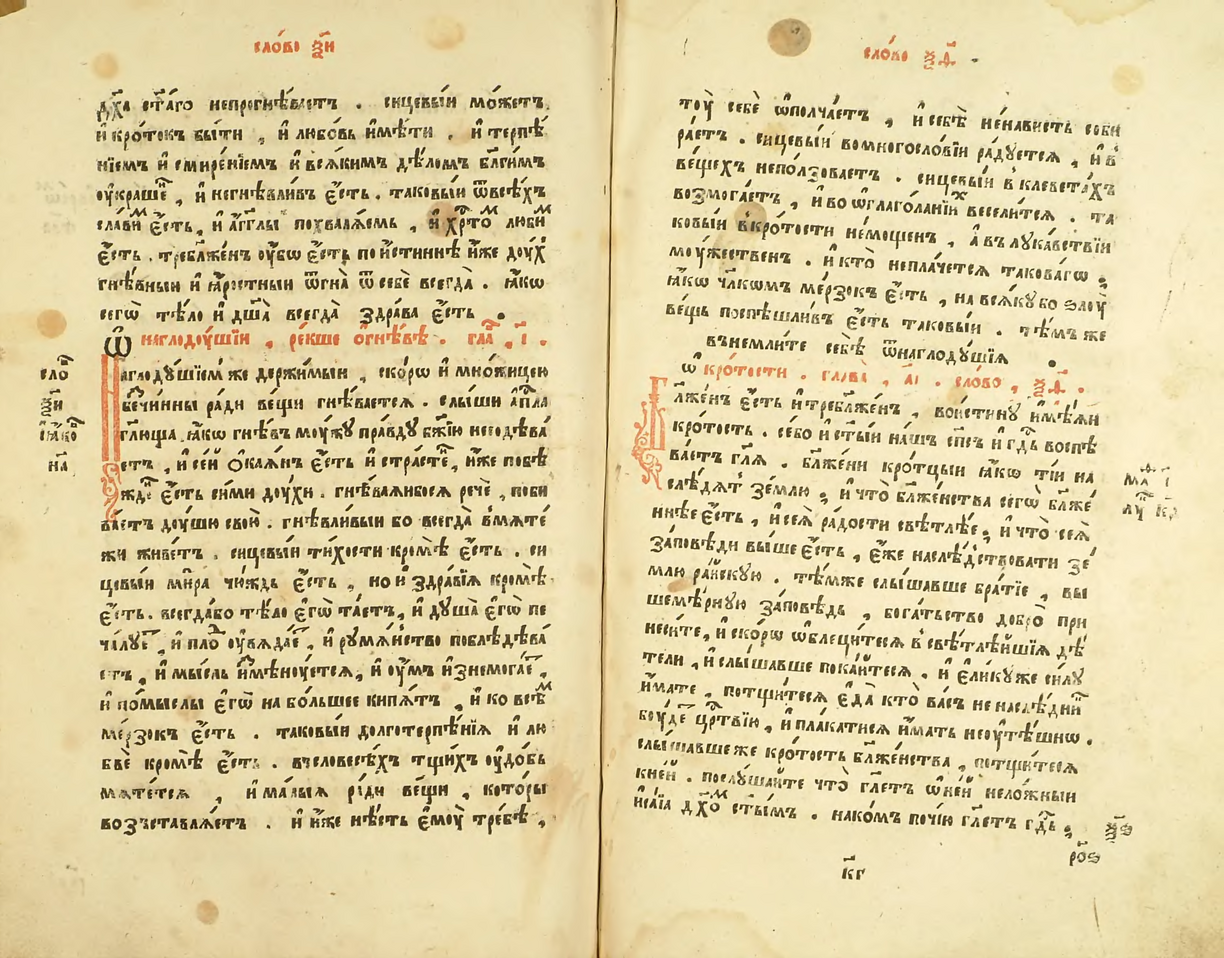 сло́во ѯ҃и
дх҃а ст҃а́го непрогнѣ́ваетъ . сицевы́и мо́жетъ
и҆ кро́токъ бы́ти , и҆ любо́вь и҆мѣ́ти . и҆ терпѣ́
нїемъ и҆ смире́нїемъ и҆ вся́кимъ дѣ́ломъ бл҃ги́мъ
ѹ҆краше , и҆ негнѣвли́въ є҆́сть . таковы́и ѿвсѣ́хъ
сла́вим є҆́сть , и҆ а҆́гг҃лы похваля́емь , и҆ хрⷭ҇то́м люби́м
є҆́сть . требл҃же́нъ ѹ҆́бѡ є҆́сть пои́стиннѣ и҆́же дѹ́х
гнѣ́вныи и҆ ꙗ҆́ростныи ѿгна̀ ѿ себѐ всегда̀ . ꙗ҆́кѡ
сегѡ̀ тѣ́ло и҆ дш҃а̀ всегда̀ здра́ва є҆́сть .
Ѡ наглодѹ́шїи , ре́кше ѻ҆гнѣ́вѣ . гла҃ , і҃ .
Наглодꙋ́шїем же держи́мыи , ско́рѡ и҆ мно́жицею
бечи́нны ра́ди ве́щи гнѣ́вается . слы́ши а҆пⷭ҇ла
гл҃юща , ꙗ҆́кѡ гнѣ́въ мѹ́жꙋ пра́вдꙋ бж҃їю несодѣва́
етъ , и҆ се́й ѻ҆кая́нъ є҆́сть и҆ стра́сте , и҆́же побѣ
жде є҆́сть си́ми дѹ́хи . гнѣ́ваяибося речѐ , поби
ва́етъ дѹ́ши свои́ . гнѣвли́выи бо всегда̀ вмяте́
жи живе́тъ . сицевы́и ти́хости кро́мѣ є҆́сть . си
цевы́и ми́ра чю́ждь є҆́сть , но и҆ здра́вїя кро́мѣ
є҆́сть . всегда́бо тѣ́ло є҆гѡ̀ та́етъ , и҆ дꙋша̀ є҆гѡ̀ пе
ча́лꙋе , и҆ пло ѹ҆вяда́е , и҆ рꙋмя́нство поблѣдѣва́
етъ , и҆ мы́сль и҆змѣнѹ́ется , и҆ ѹ҆́мъ и҆знемога́е ,
и҆ по́мыслы є҆гѡ̀ на бо́льшее кипя́тъ , и҆ ко всѣм
ме́рзокъ є҆́сть . таковы́и долготерпѣ́нїя и҆ лю
бвѐ кро́мѣ є҆́сть . вчеловесѣ́хъ тщи́хъ ѹ҆до́бь
мяте́тся , и҆ ма́лыя ра́ди ве́щи , кото́ры
возъставля́етъ . и҆ и҆́же нѣ́сть є҆мѹ̀ тре́бѣ ,
сло́
ѯ҃и
і҆а́ко
на
сло́во ѯ҃д .
тѹ̀ себѐ ѡ҆полча́етъ , и҆ себѣ̀ не́нависть соби
ра́етъ . сицевы́и вомногосло́вїи ра́дꙋется , и҆ в
ве́щехъ непо́лзоваетъ . сицевы́и в клевета́хъ
возмога́етъ , и҆ во ѡ҆глаго́ланїих весели́тся . та
ковы́и в кро́тости не́мощенъ , а҆ в лꙋка́вствїи
мѹ́жественъ . и҆ кто̀ непла́чется такова́гѡ ,
ꙗ҆́кѡ чл҃кѡмъ ме́рзокъ є҆́сть , на вся́кꙋ бо ѕлѹ́
ве́щь поспѣ́шливъ є҆́сть таковы́и . тѣ́мъ же
вънемли́те себѣ̀ ѿнаглодꙋ́шїя .
ѡ кро́тости . глава̀ , а҃і . сло́во , ѯ҃д .
Бл҃же́нъ є҆́сть и҆ требл҃же́нъ , вои́стинꙋ и҆мѣ́яи
кро́тость . се́бо и҆ ст҃ы́и на́шъ сп҃съ и҆ гдⷭ҇ь воспѣ
ва́етъ гл҃я . бл҃же́ни кро́тцыи ꙗ҆́кѡ ті́и на
слѣ́дятъ зе́млю , и҆ что̀ бл҃же́нства сегѡ̀ бл҃же́
ннѣе є҆́сть , и҆ сея̀ ра́дости свѣтлѣ́е , и҆ что̀ сея̀
за́повѣди вы́ше є҆́сть , є҆́же наслѣ́дствовати зе́
млю ра́искꙋю . тѣ́мже слы́шавше бра́тїе , вы
шемѣ́рнꙋю за́повѣдь , бога́тьство добро̀ при
неси́те , и҆ ско́рѡ ѡ҆блеци́теся в свѣтлѣ́ишїя дѣ́
тели , и҆ слы́шавше пока́итеся . и҆ є҆ли́кꙋже си́лꙋ
и҆́мате , потщи́теся є҆да̀ кто̀ ва́съ не наслѣ́дни
бѹ́де црⷭ҇твїю , и҆ пла́катися и҆́мать неѹтѣ́шнѡ .
слы́шавшеже кро́тость бл҃же́нства , потщи́теся
кне́й . послꙋ́шаите что̀ гл҃етъ ѡ҆не́й нело́жныи
и҆са́їа дх҃ом ст҃ы́мъ . нако́мъ почі́ю гл҃етъ гдⷭ҇ь ,
лꙋ̑
ѯ҃ѕ
ро҃ѕ
к҃г